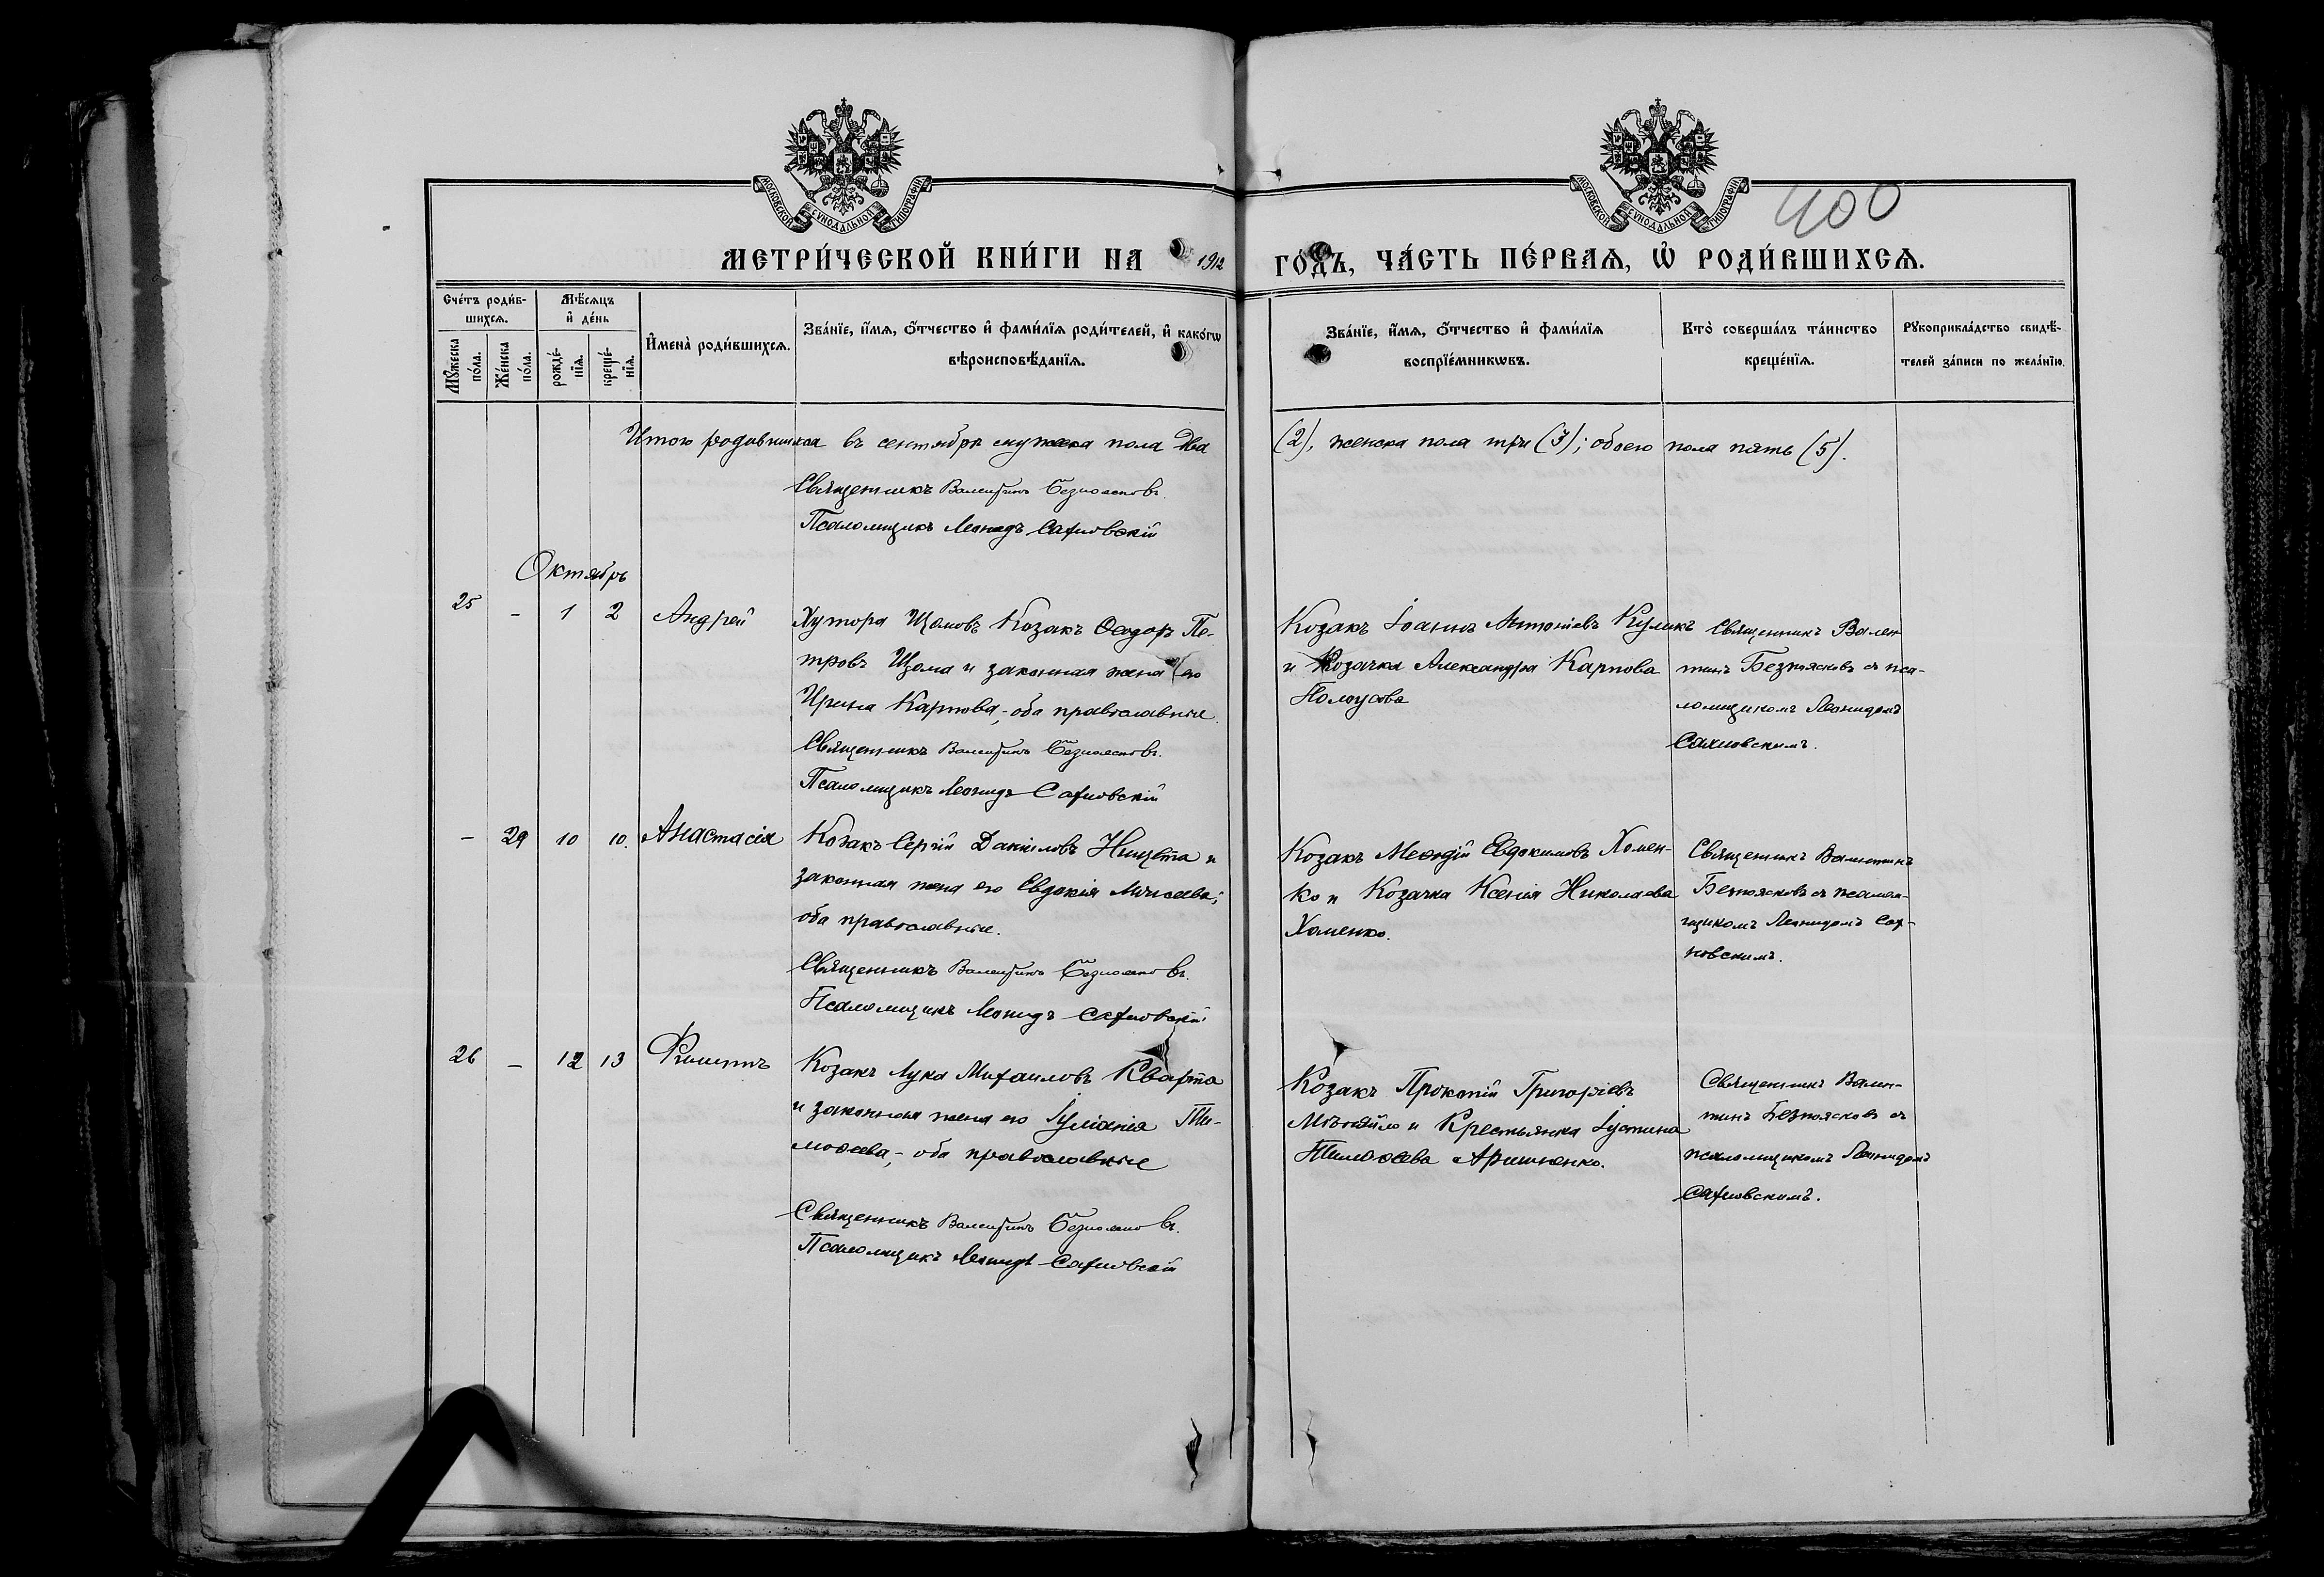 МОСКОВСКОЙ СУНОДАЛЬНОЙ ТИПОГРАФІИ
МОСКОВСКОЙ СУНОДАЛЬНОЙ ТИПОГРАФІИ
400
МЕТРИ́ЧЕСКОЙ КНИ́ГИ НА 1912 ГО́ДЪ, ЧА́СТЬ ПЕ́РВАѦ, Ѡ҆ РОДИ́ВШИХСѦ.
Сче́тъ роди́в-
шихсѧ.
Мѣ́сѧцъ
и҆ де́нь
Мꙋ́жеска
по́ла.
Же́нска
по́ла.
рожде́-
нїѧ.
креще́-
нїѧ.
И҆мена̀ роди́вшихсѧ.
Зва́нїе, и҆́мѧ, ѻ҆́тчество и҆ фами́лїѧ роди́телей, и҆ како́гѡ
вѣроисповѣ́данїѧ.
Зва́нїе, и҆́мѧ, ѻ҆́тчество и҆ фами́лїѧ
воспрїе́мникѡвъ.
Кто̀ соверша́лъ та́инство
креще́нїѧ.
Рꙋкоприкла́дство свидѣ́-
телей за́писи по жела́нїю.
Итого родившихся въ сентябрѣ мужеска пола два (2), женска пола три (3); обоего пола пять (5).
Священникъ Валентинъ Безпоясковъ.
Псаломщикъ Леонидъ Сахновскій
Октябрь
25 – 1 2 Андрей
Хутора Щомовъ Козакъ Ѳеодоръ Пе-
тровъ Щома и законная жена его
Ирина Карпова, оба православные.
Священникъ Валентинъ Безпоясковъ.
Псаломщикъ Леонидъ Сахновскій
Козакъ Іоаннъ Антоніевъ Куликъ
и Козачка Александра Карпова
Священникъ Вален-
тинъ Безпоясковъ съ пса-
ломщикомъ Леонидомъ
Сахновскимъ.
– 29 10 10. Анастасія
Козакъ Сергій Даніиловъ Нищета и
законная жена его Евдокія
оба православные.
Священникъ Валентинъ Безпоясковъ.
Псаломщикъ Леонидъ Сахновскій
Козакъ Меѳодій Евдокимовъ Хомен-
ко и Козачка Ксенія Николаева
Хоменко.
Священникъ Валентинъ
Безпоясковъ съ псалом-
щикомъ Леонидомъ Сах-
новскимъ.
26 – 12 13 Филиппъ
Козакъ Лука Михаиловъ Кварта
и законная жена его Іуліанія Ти-
моѳеева, оба православные
Священникъ Валентинъ Безпоясковъ.
Псаломщикъ Леонидъ Сахновскій
Козакъ Прокопій Григоріевъ
и Крестьянка Іустина
Тимоѳеева
Священникъ Вален-
тинъ Безпоясковъ съ
псаломщикомъ Леонидомъ
Сахновскимъ.